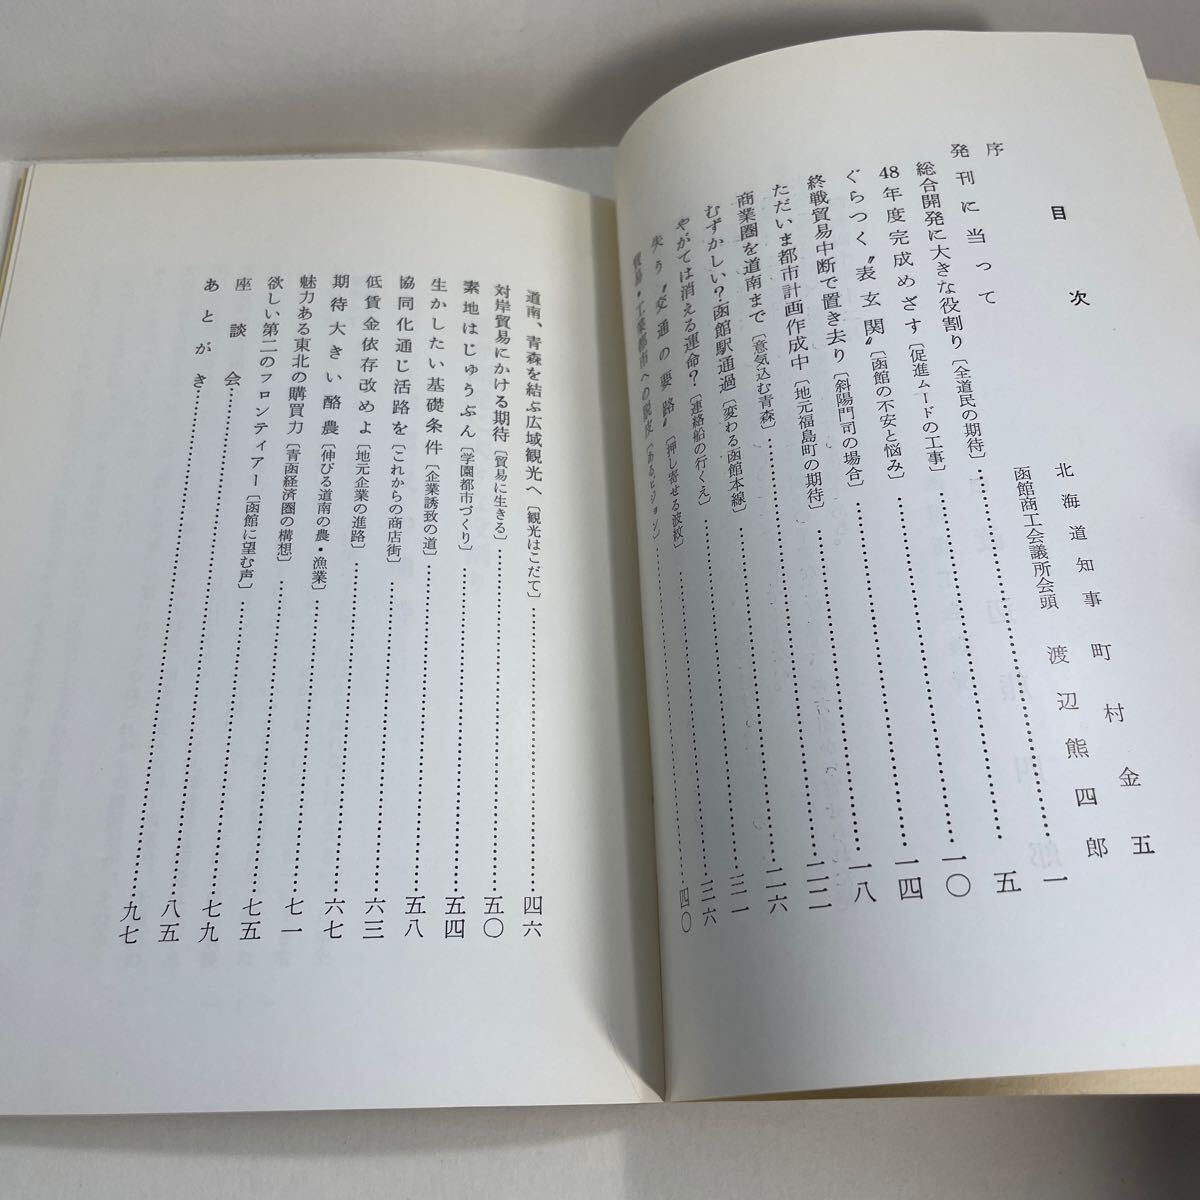 目次
序 北海道知事 町村金五
発刊に当って 函館商工会議所会頭 渡辺熊四郎
総合開発に大きな役割り〔全道民の期待〕…………一
48年度完成めざす〔促進ムードの工事〕…………五
ぐらつく〝表玄関〟〔函館の不安と悩み〕…………一〇
終戦貿易中断で置き去り〔斜陽門司の場合〕…………一四
ただいま都市計画作成中〔地元福島町の期待〕…………一八
商業圏を道南まで〔意気込む青森〕…………二二
むずかしい?函館駅通過〔変わる函館本線〕…………二六
やがては消える運命?〔連絡船の行くえ〕…………三一
失う〝交通の要路〟〔押し寄せる波紋〕…………三六
貿易・工業都市への脱皮〔あるビジョン〕…………四〇
道南、青森を結ぶ広域観光へ〔観光はこだて〕…………四六
対岸貿易にかける期待〔貿易に生きる〕…………五〇
素地はじゅうぶん〔学園都市づくり〕…………五四
生かしたい基礎条件〔企業誘致の道〕…………五八
協同化通じ活路を〔これからの商店街〕…………六三
低賃金依存改めよ〔地元企業の進路〕…………六七
期待大きい酪農〔伸びる道南の農・漁業〕…………七一
魅力ある東北の購買力〔青函経済圏の構想〕…………七五
欲しい第二のフロンティアー〔函館に望む声〕…………七九
座談会…………八五
あとがき…………九七